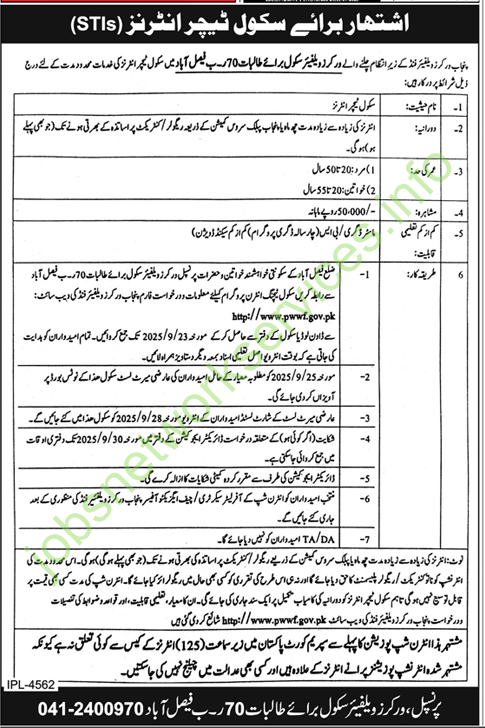 اشتہار برائے سکول ٹیچر انٹرنز (STIs)
پنجاب ورکرز ویلفیئر فنڈ کے زیر انتظام چلنے والے ورکرز ویلفیئر سکول برائے طالبات 70 رـب فیصل آباد میں سکول ٹیچر انٹرنز کی خدمات محدود مدت کے لئے درج
ذیل شرائط پر درکار ہیں:
1۔ نام حیثیت: سکول ٹیچر انٹرنز
2۔ دورانیہ: انٹرنز کی زیادہ سے زیادہ مدت چھ ماہ یا پنجاب پبلک سروس کمیشن کے ذریعہ ریگولر/کنٹریکٹ پر اساتذہ کے بھرتی ہونے تک (جو بھی پہلے
ہو) ہوگی۔
3۔ عمر کی حد: 1) مرد: 20 تا 50 سال
2) خواتین: 20 تا 55 سال
4۔ مشاہرہ: -/50,000 روپے ماہانہ
5۔ کم از کم تعلیمی قابلیت: ماسٹر ڈگری/بی ایس (چار سالہ ڈگری پروگرام) کم از کم سیکنڈ ڈویژن
6 طریقہ کار: 1- ضلع فیصل آباد کے سکونتی خواہشمند خواتین و حضرات پرنسپل ورکرز ویلفیئر سکول برائے طالبات 70 رـب فیصل آباد
سے رابطہ کریں سکول ٹیچنگ انٹرن پروگرام کیلئے معلومات و درخواست فارم پنجاب ورکرز ویلفیئر فنڈ کی ویب سائٹ:
http://www.pwwf.gov.pk
سے ڈاؤن لوڈ یا سکول کے دفتر سے حاصل کر کے مورخہ 23/9/2025 تک جمع کروائیں۔ تمام امیدواران کو ہدایت
کی جاتی ہے کہ بوقت انٹرویو اصل تعلیمی اسناد بمعہ دیگر دستاویز ہمراہ لائیں۔
2- مورخہ 25/9/2025 کو مطلوبہ معیار کے حامل امیدواران کی عارضی میرٹ لسٹ سکول ھذا کے نوٹس بورڈ پر
آویزاں کر دی جائے گی۔
3- عارضی میرٹ لسٹ کے شارٹ لسٹڈ امیدواران کے انٹرویو مورخہ 28/9/2025 کو سکول ھذا میں کئے جائیں گے۔
4- شکایت (اگر کوئی ہو) کے متعلقہ درخواست ڈائریکٹر ایجوکیشن کے دفتر میں مورخہ 30/9/2025 تک دفتری اوقات
میں جمع کروائی جا سکتی ہے۔
5- ڈائریکٹر ایجوکیشن کی طرف سے مقرر کردہ کمیٹی شکایات کا ازالہ کرے گی۔
6- منتخب امیدواران کو انٹرن شپ کے آفر لیٹر سیکرٹری/چیف ایگزیکٹو آفیسر پنجاب ورکرز ویلفیئر فنڈ کی منظوری کے بعد
جاری کئے جائیں گے۔
7- TA/DA امیدواران کو نہیں دیا جائے گا۔
نوٹ: انٹرنز کی زیادہ سے زیادہ مدت چھ ماہ یا پبلک سروس کمیشن کے ذریعے ریگولر/کنٹریکٹ پر اساتذہ کی بھرتی ہونے تک (جو بھی پہلے ہو) ہوگی۔ اس محدود مدت کی
انٹرنشپ کو تا کنٹریکٹ/ریگولر پلیسمنٹ کا حق دیا جائے گا اور نہ ہی اس طرح کی تقرری کو کسی بھی حال میں ریگولرائز کیا جائے گا۔ انٹرن شپ کی مدت کسی بھی قیمت پر
قابل توسیع نہیں ہوگی تاہم سکول ٹیچر انٹرنز کو دورانیہ کی کامیاب تکمیل پر ایک سند جاری کی جائے گی۔ ان کا معیار، تعلیمی قابلیت، اور قواعد و ضوابط کی تفصیلات
و درخواست پنجاب ورکرز ویلفیئر فنڈ کی ویب سائٹ http://www.pwwf.gov.pk شائع کر دی گئی ہیں
مشتہر ھذا انٹرن شپ پوزیشن کا پہلے سے سپریم کورٹ پاکستان میں زیر سماعت (125) انٹرنز کے کیس سے کوئی تعلق نہ ہے کیونکہ
مشتہر شدہ انٹرنشپ پوزیشنز پرانے انٹرنز کے علاوہ ہیں اور کسی بھی عدالت میں چیلنج نہیں کی جا سکتیں۔
IPL-4562
پرنسپل، ورکرز ویلفیئر سکول برائے طالبات 70 رـب فیصل آباد 041-2400970
jobsnetworkservices.info